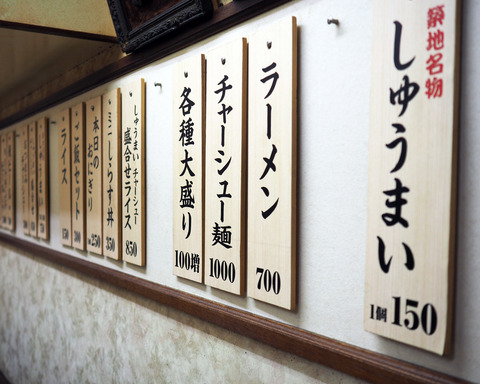 築地名物
しゅうまい
1個 150
ラーメン
700
チャーシュー麺
1000
各種大盛り
100増
しゅうまい チャーシュー
盛合せライス
850
ミニしらす丼
350
本日の
おにぎり
250
ご飯セット
ライス